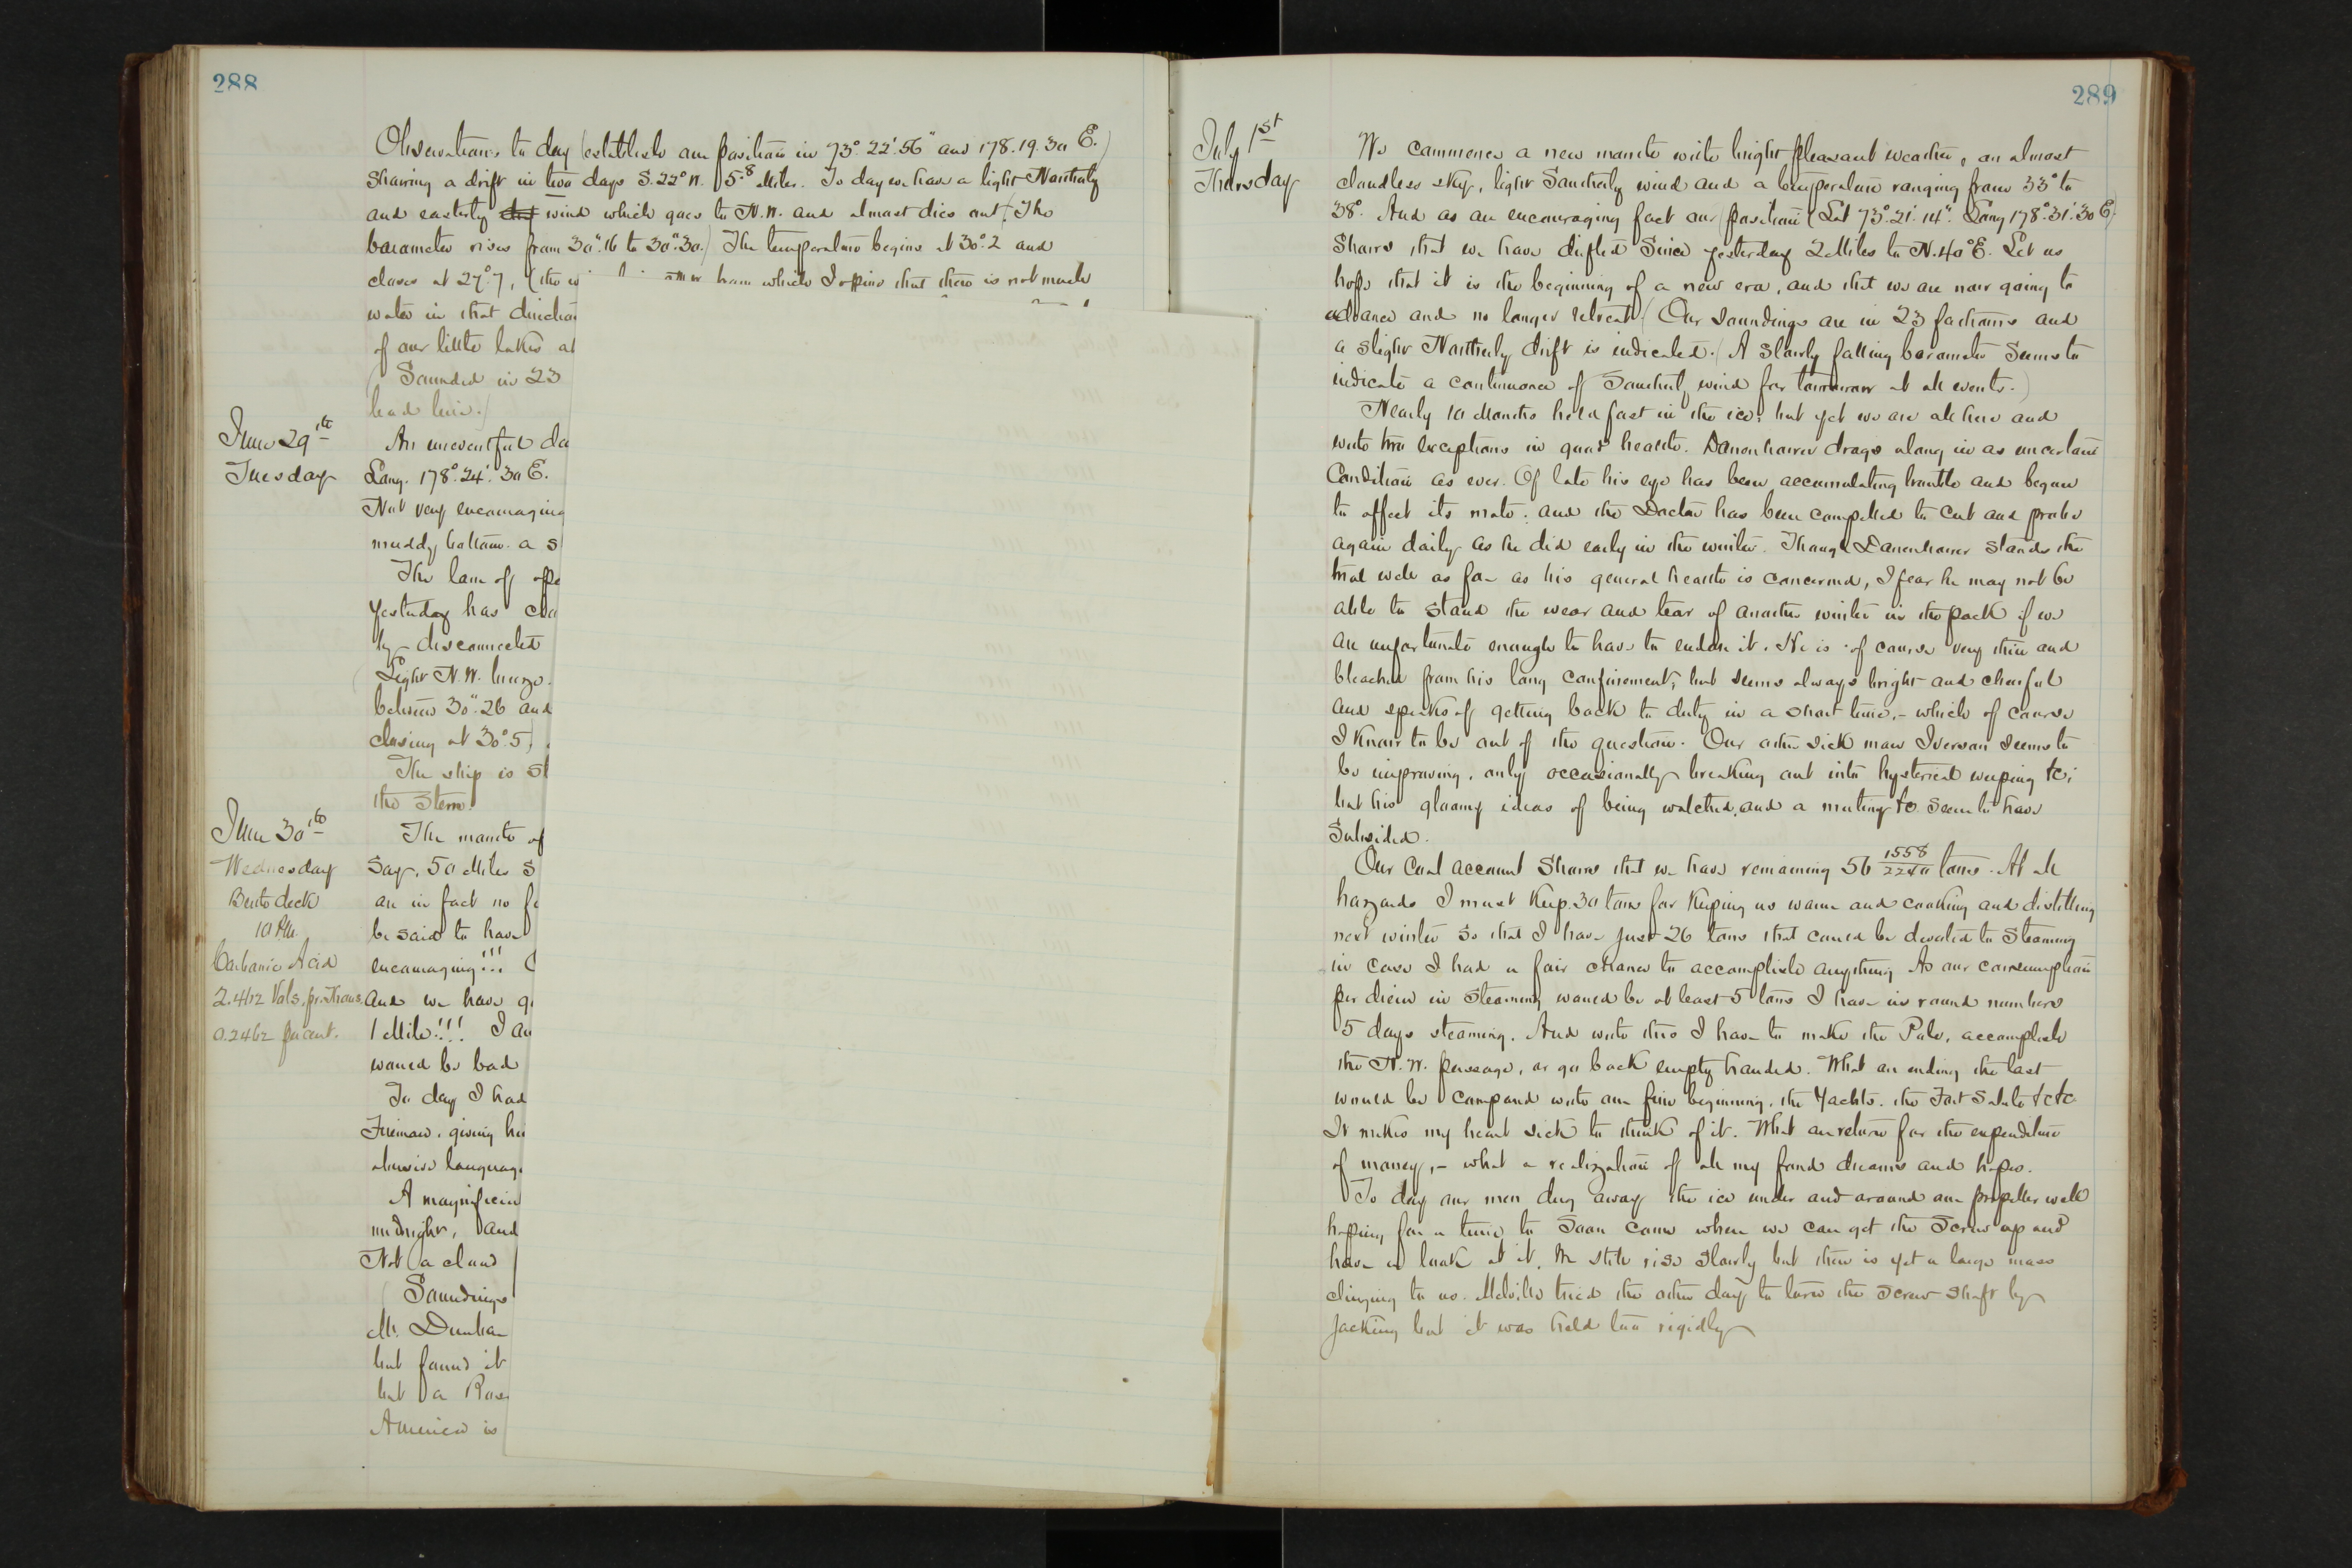 288
Observations to day (establish our position in 73°. 22'. 56" and 178. 19. 30 E.)
Showing a drift in two days S. 22° W. 5.8 Miles. To day we have a light Northerly
and easterly wind which goes to N.W. and almost dies out. (The
barometer rises from 30".16 to 30".30.) The temperature begins at 30°.2 and
closes at 27°.7, (the w from which I opine that there is not much
water in that direction
of our little lakes at
Sounded in 23
lead line.)
June 29th
Tuesday
An uneventful da
Long. 178°. 24'. 30 E.
Not very encouraging
muddy bottom. a s
The lane of ope
yesterday has clo
by disconnected
(Light N.W. breeze.
between 30".26 and
closing at 30°.5)
The ship is st
the Stern.
June 30th
Wednesday
Berth deck
10 P.M.
Carbonic Acid
2.462 Vols. pr. Thous.
0.2462 per cent.
The month of
Say, 50 Miles S
are in fact no fa
be said to have
encouraging!!!
And we have g
1 Mile!!! I am
would be bad
To day I had
Fireman, giving hi
abusive languag
A magnificen
midnight, and
Not a cloud
(Soundings
Mr. Dunbar
but found it
but a Rose
America is
289
July 1st
Thursday
We commence a new month with bright pleasant weather, an almost
cloudless sky, light Southerly wind and a temperature ranging from 33° to
38°. And as an encouraging fact our position (Lat 73°. 21'. 14". Long 178°. 31'. 30 E.
Shows that we have drifted Since yesterday 2 Miles to N. 40° E. Let us
hope that it is the beginning of a new era, and that we are now going to
advance and no longer retreat. (Our soundings are in 23 fathoms and
a slight Northerly drift is indicated. (A slowly falling barometer Seems to
indicate a continuance of Southerly wind for tomorrow at all events.)
Nearly 10 Months held fast in the ice, but yet we are all here and
with two exceptions in good health. Danenhower drags along in as uncertain
Condition as ever. Of late his eye has been accumulating trouble and begun
to affect its mate. and the Doctor has been compelled to Cut and probe
again daily as he did early in the winter. Though Danenhower stands the
trial well as far as his general health is concerned, I fear he may not be
able to stand the wear and tear of another winter in the pack if we
are unfortunate enough to have to endure it. He is of course very thin and
bleached from his long confinement, but seems always bright and cheerful
and speaks of getting back to duty in a short time, - which of course
I Know to be out of the question. Our other sick man Iversen seems to
be improving, only occasionally breaking out into hysterical weeping &c;
but his gloomy ideas of being watched, and a mutiny &c seem to have
Subsided.
Our Coal account Shows that we have remaining 56 1558/2240 tons. At all
hazards I must Keep 30 tons for Keeping us warm and cooking and distilling
next winter so that I have just 26 tons that could be devoted to Steaming
in case I had a fair chance to accomplish anything. As our consumption
per diem in Steaming would be at least 5 tons I have in round numbers
5 days steaming. And with this I have to make the Pole, accomplish
the N.W. passage, or go back empty handed. What an ending the last
would be compared with our fine beginning. the Yachts. the Fort Salute &c &c
It makes my heart sick to think of it. What a return for the expenditure
of money, - what a realization of all my fond dreams and hopes.
To day our men dug away the ice under and around our propeller well
hoping for a time to Soon come when we can get the Screw up and
have a look at it. We still rise Slowly but there is yet a large mass
clinging to us. Melville tried the other day to turn the Screw Shaft by
Jacking but it was held too rigidly